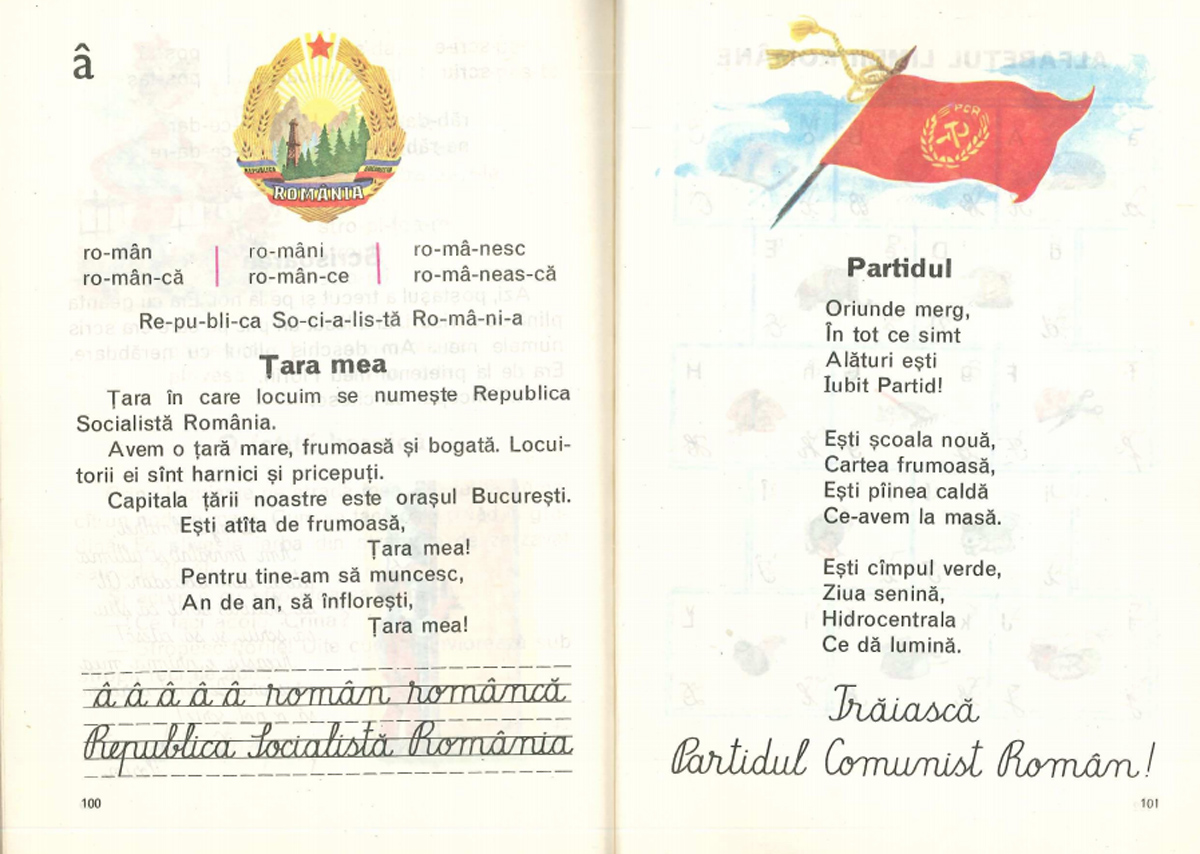 â
REPUBLICA SOCIALISTA
ROMÂNIA
ro-mân ro-mâni ro-mâ-nesc
ro-mân-că ro-mân-ce ro-mâ-neas-că
Re-pu-bli-ca So-ci-a-lis-tă Ro-mâ-ni-a
Țara mea
Țara în care locuim se numește Republica
Socialistă România.
Avem o țară mare, frumoasă și bogată. Locui-
torii ei sînt harnici și pricepuți.
Capitala țării noastre este orașul București.
Ești atîta de frumoasă,
Țara mea!
Pentru tine-am să muncesc,
An de an, să înflorești,
Țara mea!
â â â â â român româncă
Republica Socialistă România
100
PCR
Partidul
Oriunde merg,
În tot ce simt
Alături ești
Iubit Partid!
Ești școala nouă,
Cartea frumoasă,
Ești pîinea caldă
Ce-avem la masă.
Ești cîmpul verde,
Ziua senină,
Hidrocentrala
Ce dă lumină.
Trăiască
Partidul Comunist Român!
101